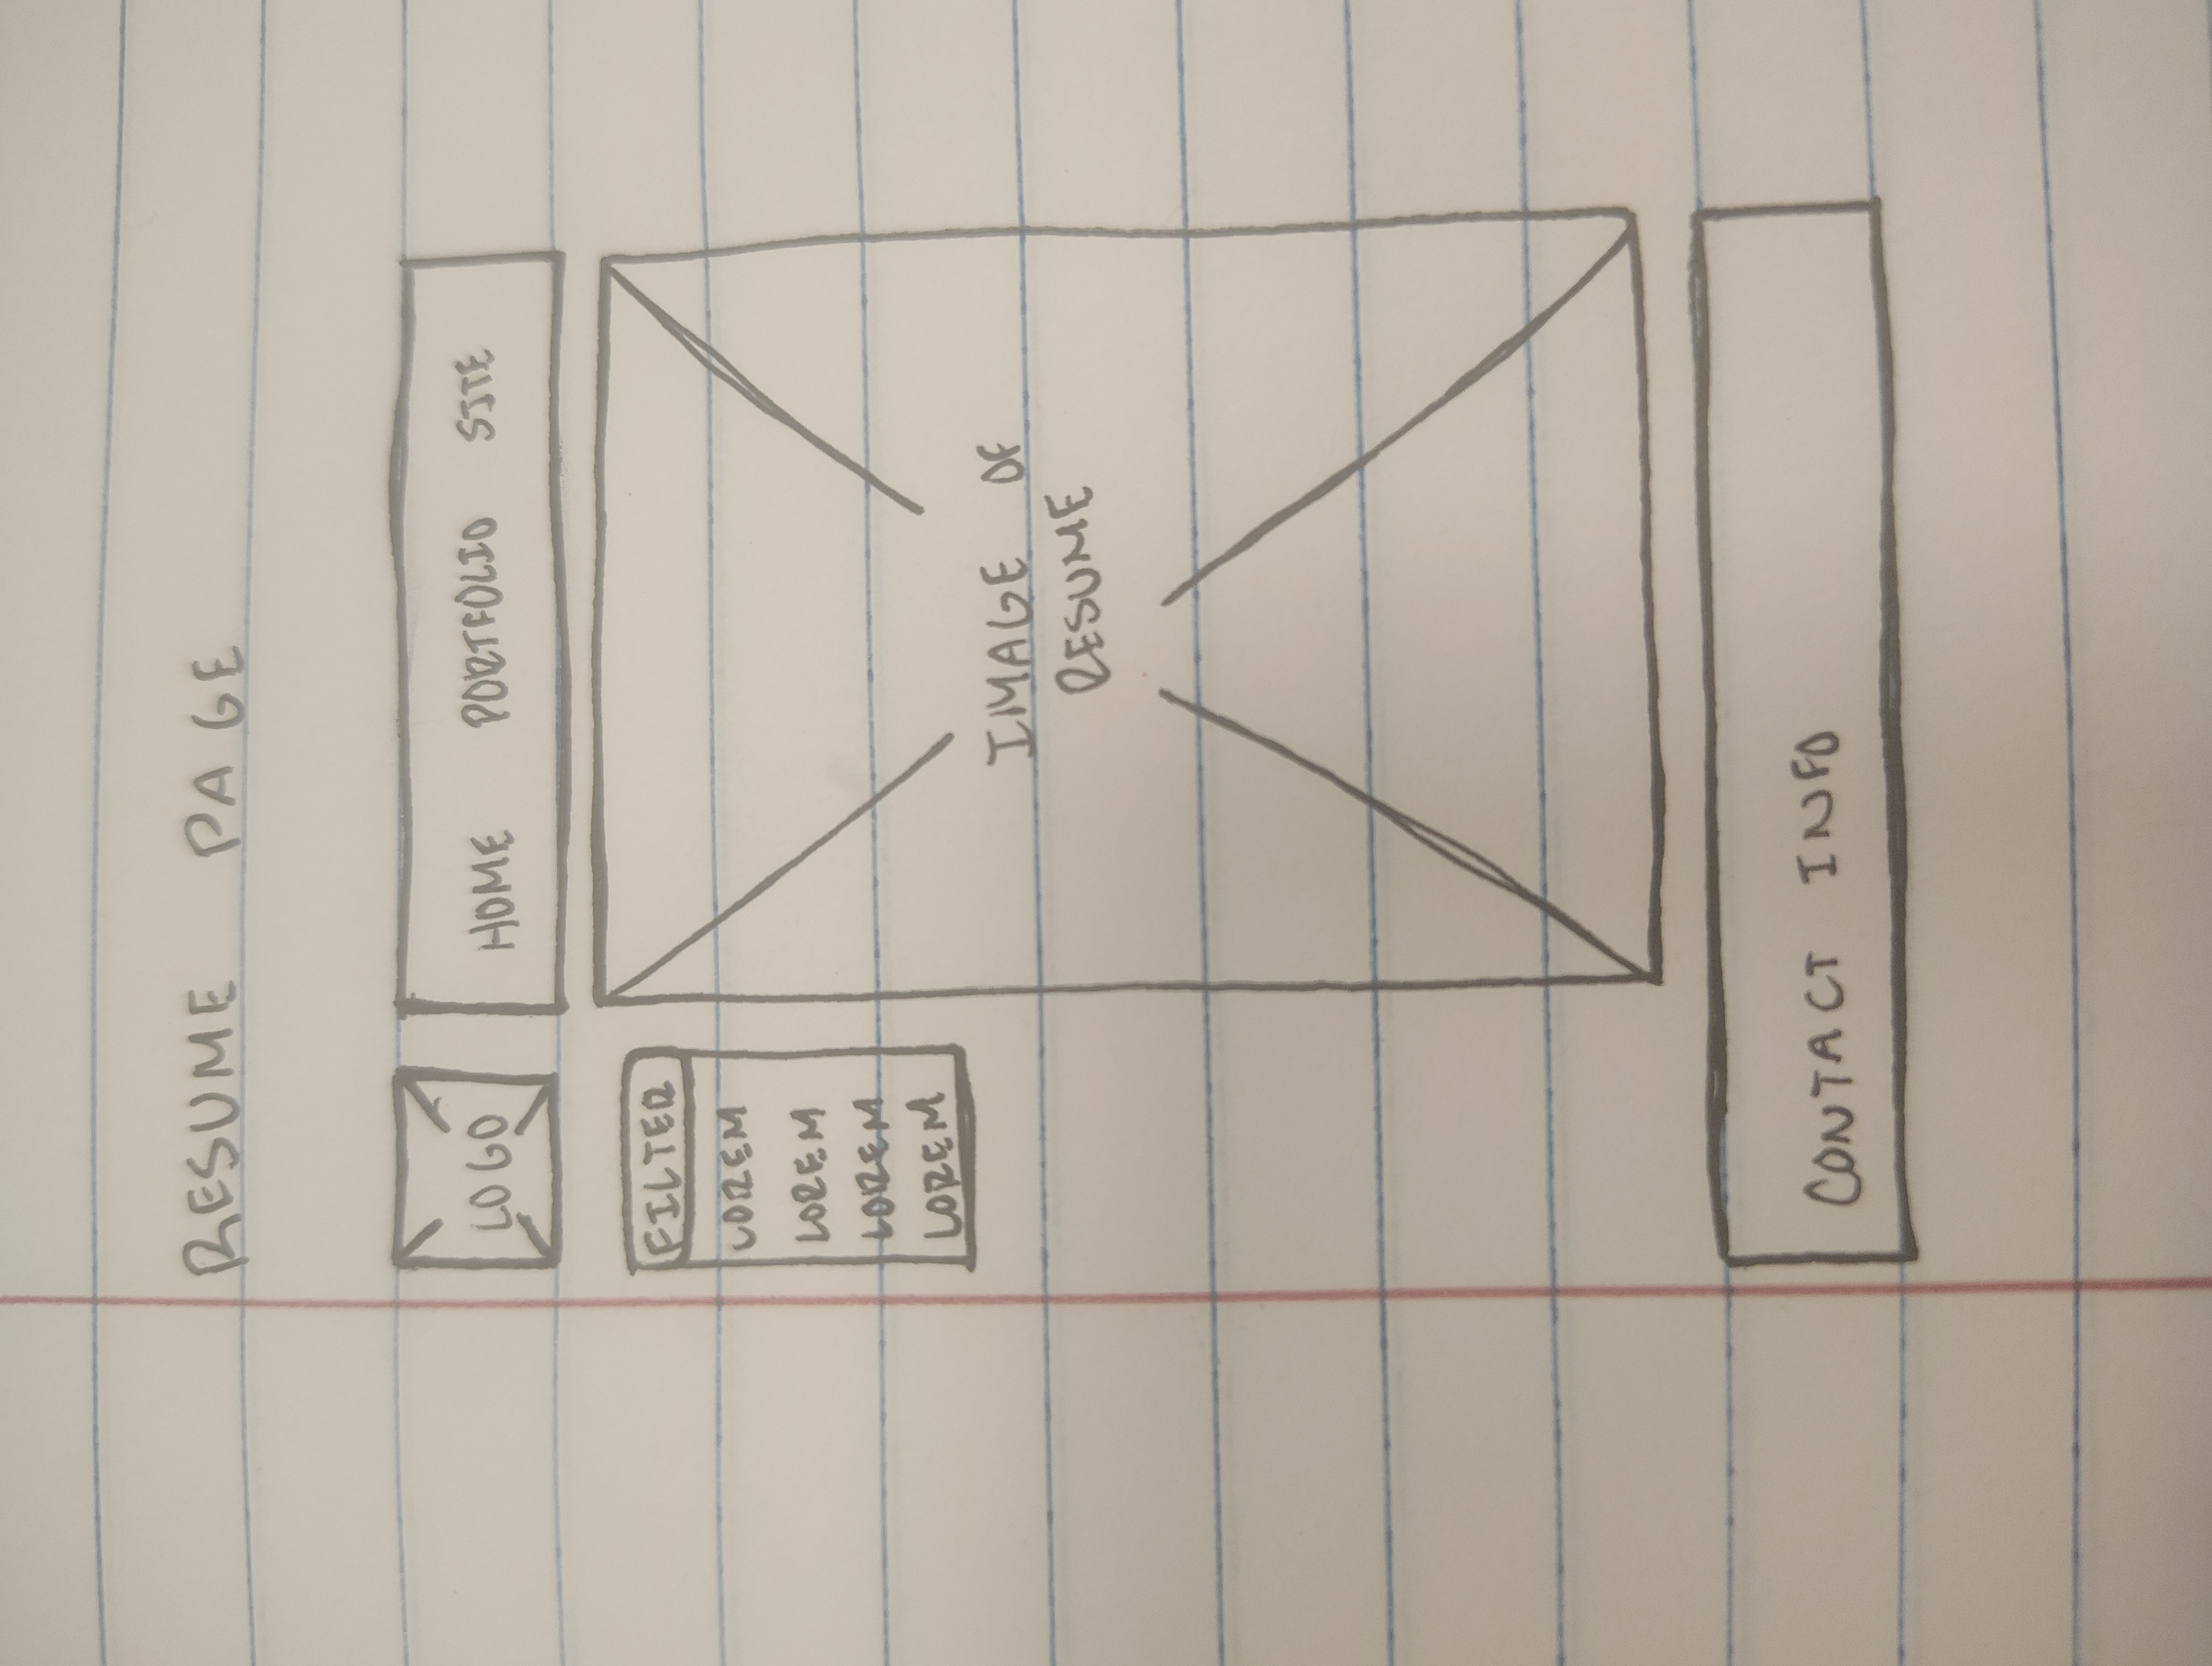 RESUME PAGE
LOGO
HOME PORTFOLIO SITE
FILTER
LOREM
LOREM
LOREM
LOREM
IMAGE OF
RESUME
CONTACT INFO